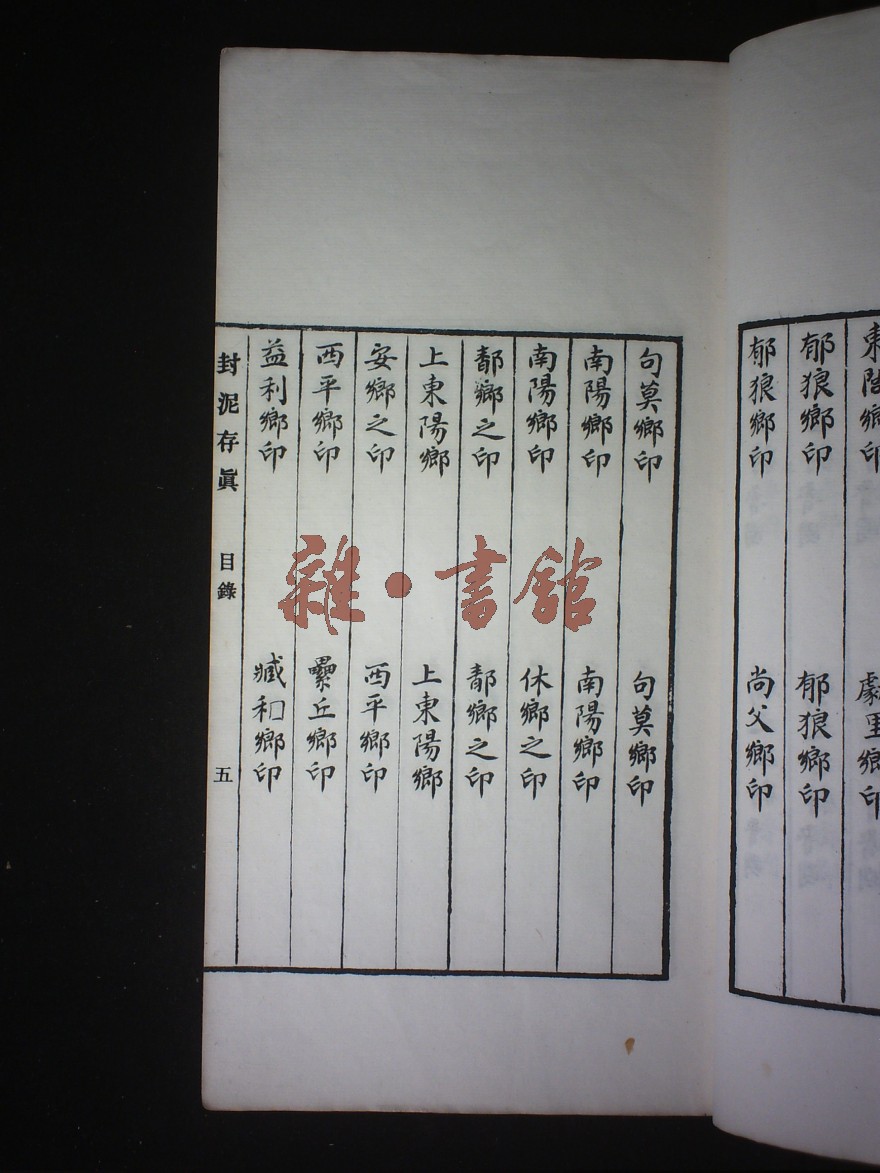 東陸鄉印
劇里鄉印
郁狼鄉印
郁狼鄉印
郁狼鄉印
尚父鄉印
句莫鄉印
句莫鄉印
南陽鄉印
南陽鄉印
南陽鄉印
休鄉之印
鄑鄉之印
鄑鄉之印
上東陽鄉
上東陽鄉
安鄉之印
西平鄉印
西平鄉印
纍丘鄉印
益利鄉印
臧和鄉印
封泥存真 目錄 五
雜·書館